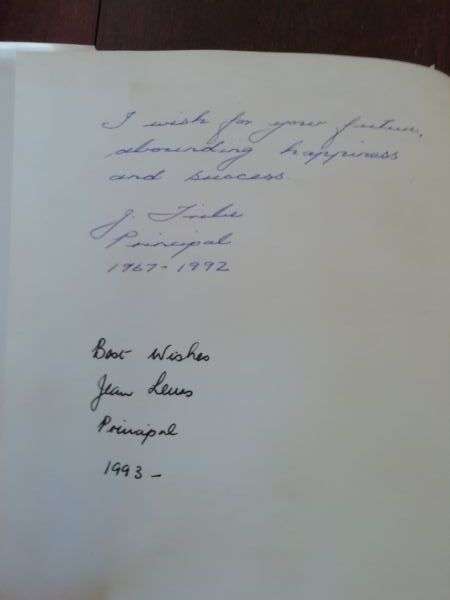 I wish for your future,
abounding happiness
and success
J.
Principal
1967-1992
Best Wishes
Jean
Principal
1993 -